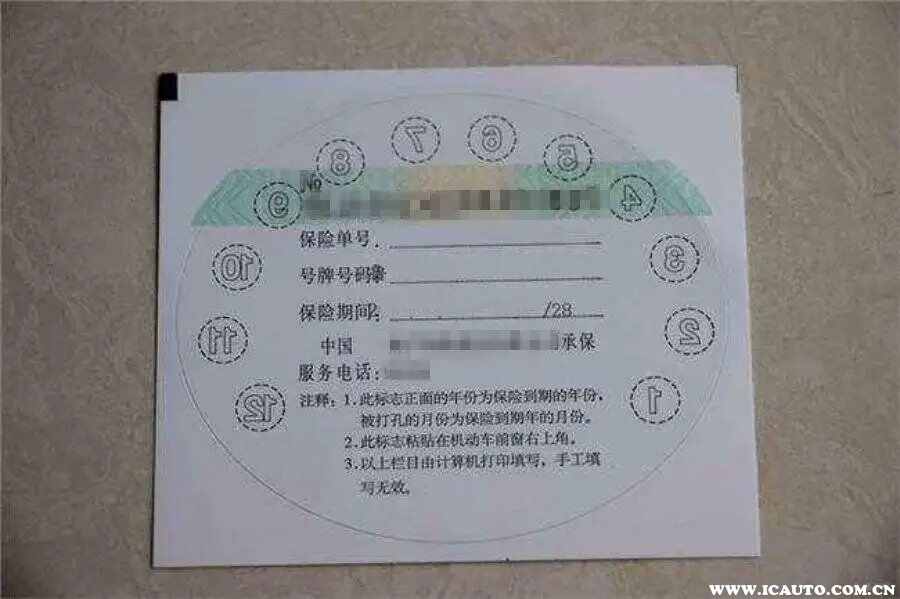 7 6
8 5
№
9 4
保险单号:
10 3
号牌号码
保险期间 /28
11 2
中国 承保
服务电话:
12 1
注释: 1.此标志正面的年份为保险到期的年份,
被打孔的月份为保险到期年的月份。
2.此标志粘贴在机动车前窗右上角。
3.以上栏目由计算机打印填写, 手工填
写无效。
WWW.ICAUTO.COM.CN